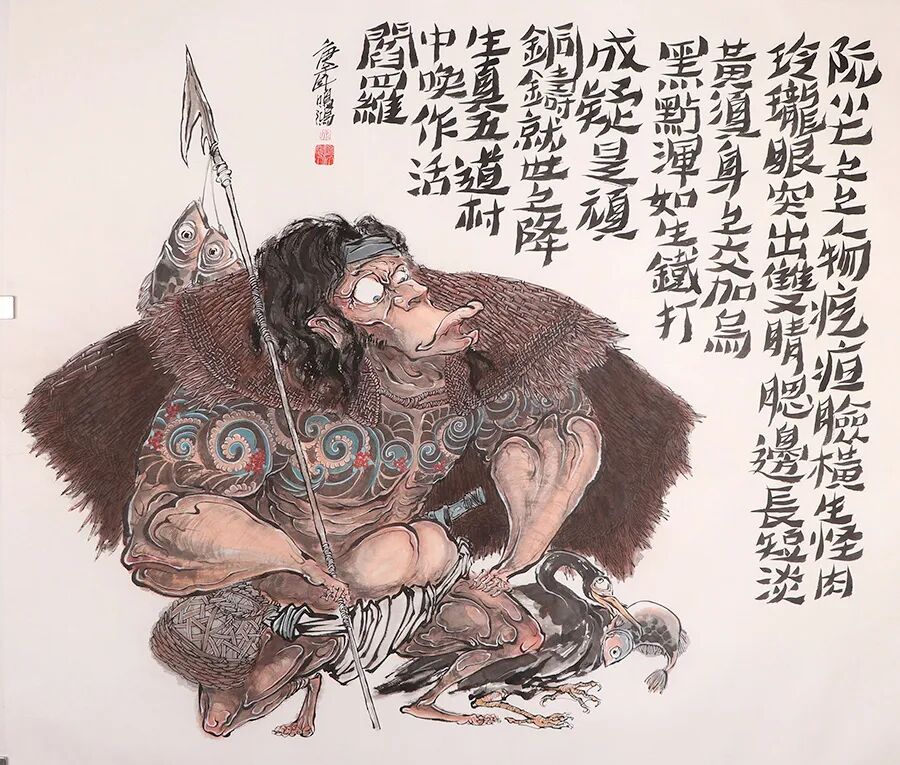 阮小七之人物疙疸臉橫生怪肉
玲瓏眼突出雙睛腮邊長短淡
黃須身上交加烏
黑點渾如生鐵打
成疑是頑
銅鑄就世上降
生真五道村
中喚作活
閻羅